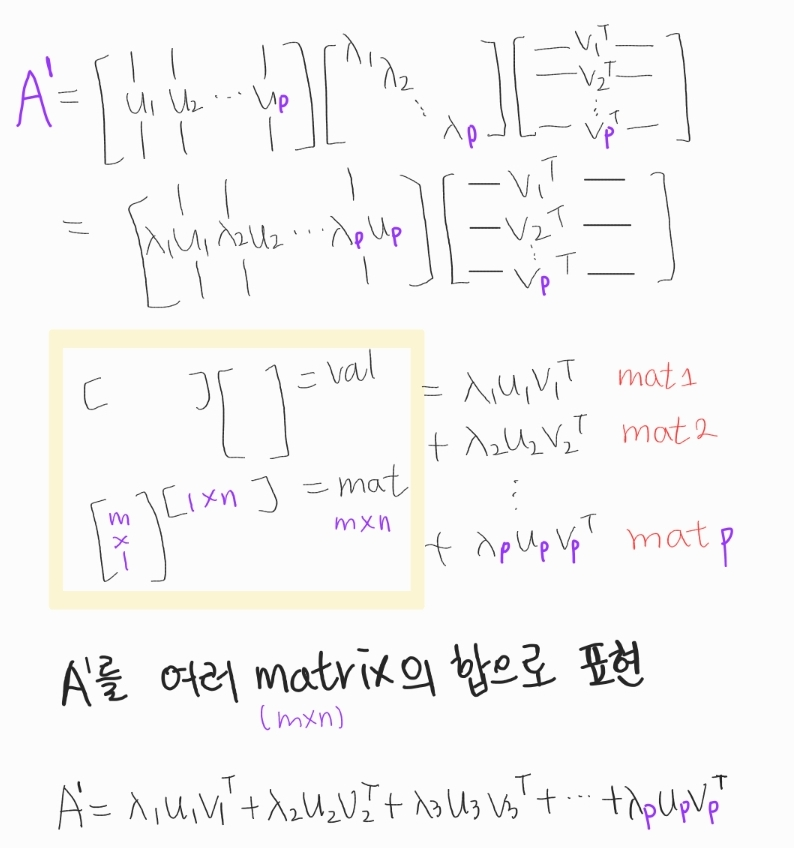 A' = [u₁ u₂ ⋯ uₚ] [λ₁ λ₂ ⋱ λₚ] [— v₁ᵀ — — v₂ᵀ — ⋮ — vₚᵀ —]
= [λ₁u₁ λ₂u₂ ⋯ λₚuₚ] [— v₁ᵀ — — v₂ᵀ — ⋮ — vₚᵀ —]
[ ] [ ] = val
[m×1] [1×n] = mat
m×n
= λ₁u₁v₁ᵀ mat1
+ λ₂u₂v₂ᵀ mat2
⋮
+ λₚuₚvₚᵀ mat p
A'를 여러 matrix의 합으로 표현
(m×n)
A' = λ₁u₁v₁ᵀ + λ₂u₂v₂ᵀ + λ₃u₃v₃ᵀ + ⋯ + λₚuₚvₚᵀ